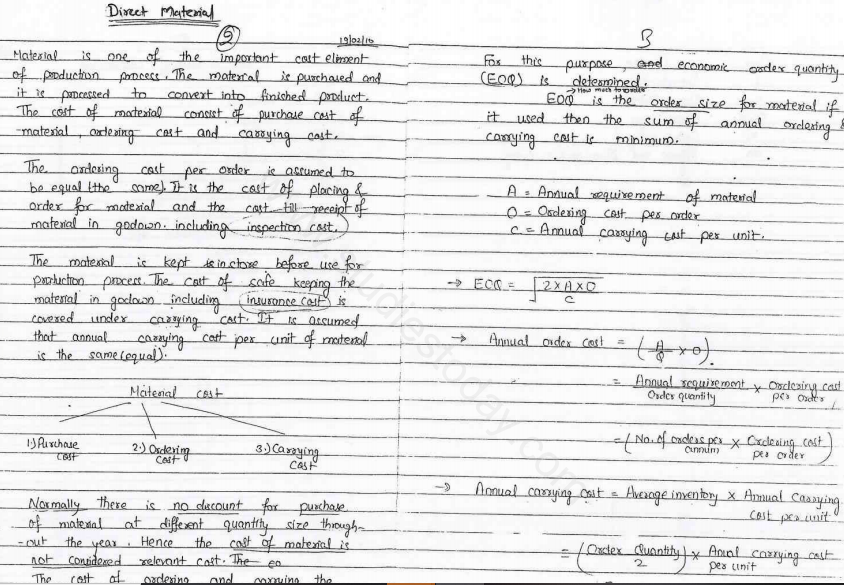 Direct Material
2
19/02/10
Material is one of the important cost eliment
of production process. The material is purchased and
it is processed to convert into finished product.
The cost of material consist of purchase cost of
material, ordering cost and carrying cost.
The ordering cost per order is assumed to
be equal (the same). It is the cost of placing &
order for material and the cost till receipt of
material in godown. including inspection cost.
The material is kept is in store before use for
production process. The cost of safe keeping the
material in godown including (insurance cost) is
covered under carrying cost. It is assumed
that annual carrying cost per unit of material
is the same (equal).
Material cost
1.) Purchase cost
2.) Ordering cost
3.) Carrying cost
Normally there is no discount for purchase
of material at different quantity size through-
-out the year. Hence the cost of material is
not considered relevant cost. The ea
The cost of ordering and carrying the
3
For this purpose, and economic order quantity
(EOQ) is determined.
→ How much to order
EOQ is the order size for material if
it used then the sum of annual ordering &
carrying cost is minimum.
A = Annual requirement of material
O = Ordering cost per order
C = Annual carrying cost per unit.
→ EOQ = √(2 × A × O / C)
→ Annual order cost = (A/Q × O).
= Annual requirement / Order quantity × Ordering cost per order
= (No. of orders per annum × Ordering cost per order)
→ Annual carrying cost = Average inventory × Annual Carrying
cost per unit
= (Order Quantity / 2) × Anual carrying cost per unit